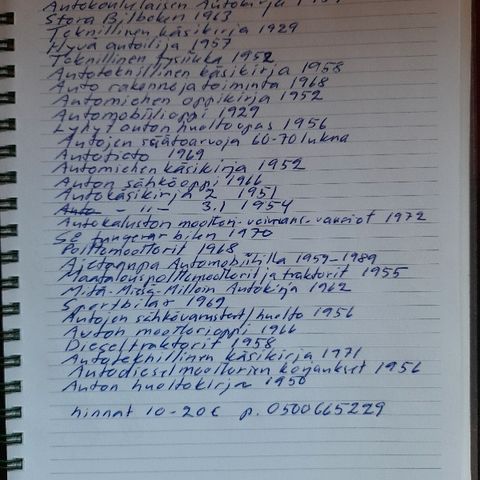 Autokoululaisen Autokirja
Stora Bilboken 1963
Teknillinen käsikirja 1929
Hyvä autoilija 1957
Teknillinen fysiikka 1952
Autoteknillinen käsikirja 1958
Auto rakenne ja toiminta 1968
Automiehen oppikirja 1952
Automobiilioppi 1929
Lyhyt auton huolto opas 1956
Autojen säätöarvoja 60-70 lukna
Autotieto 1969
Automiehen käsikirja 1952
Auton sähköoppi 1966
Autokäsikirja 2 1951
Auto - 11 - 3.1 1954
Autokaluston moottori-voimans.-vauriot 1972
Så fungerar bilen 1970
Polttomoottorit 1968
Ajotaupa Automobiililla 1959-1989
Maatalouspolttomoottorit ja traktorit 1955
Mitä-Missä-Milloin Autokirja 1962
Sportbilar 1969
Autojen sähkövarusteet/huolto 1956
Auton moottorioppi 1966
Dieseltraktorit 1958
Autoteknillinen käsikirja 1971
Autodieselmoottorien korjaukset 1956
Auton huoltokirja 1950
hinnat 10-20€ p. 0500665229